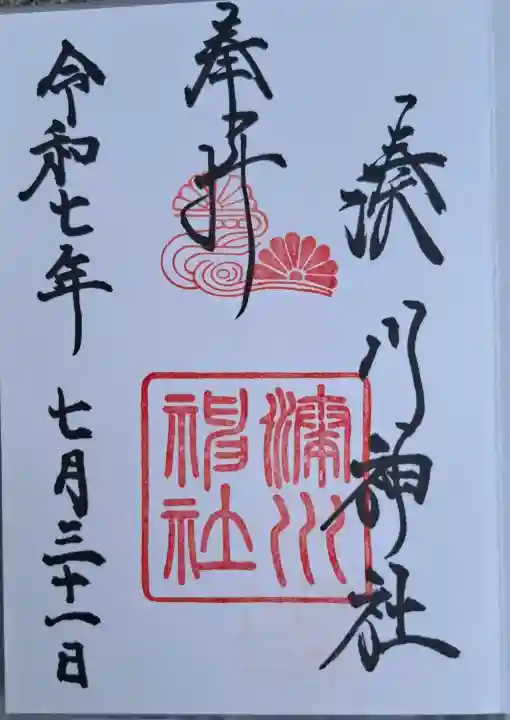 湊川神社
奉拝
湊川
神社
令和七年 七月三十一日